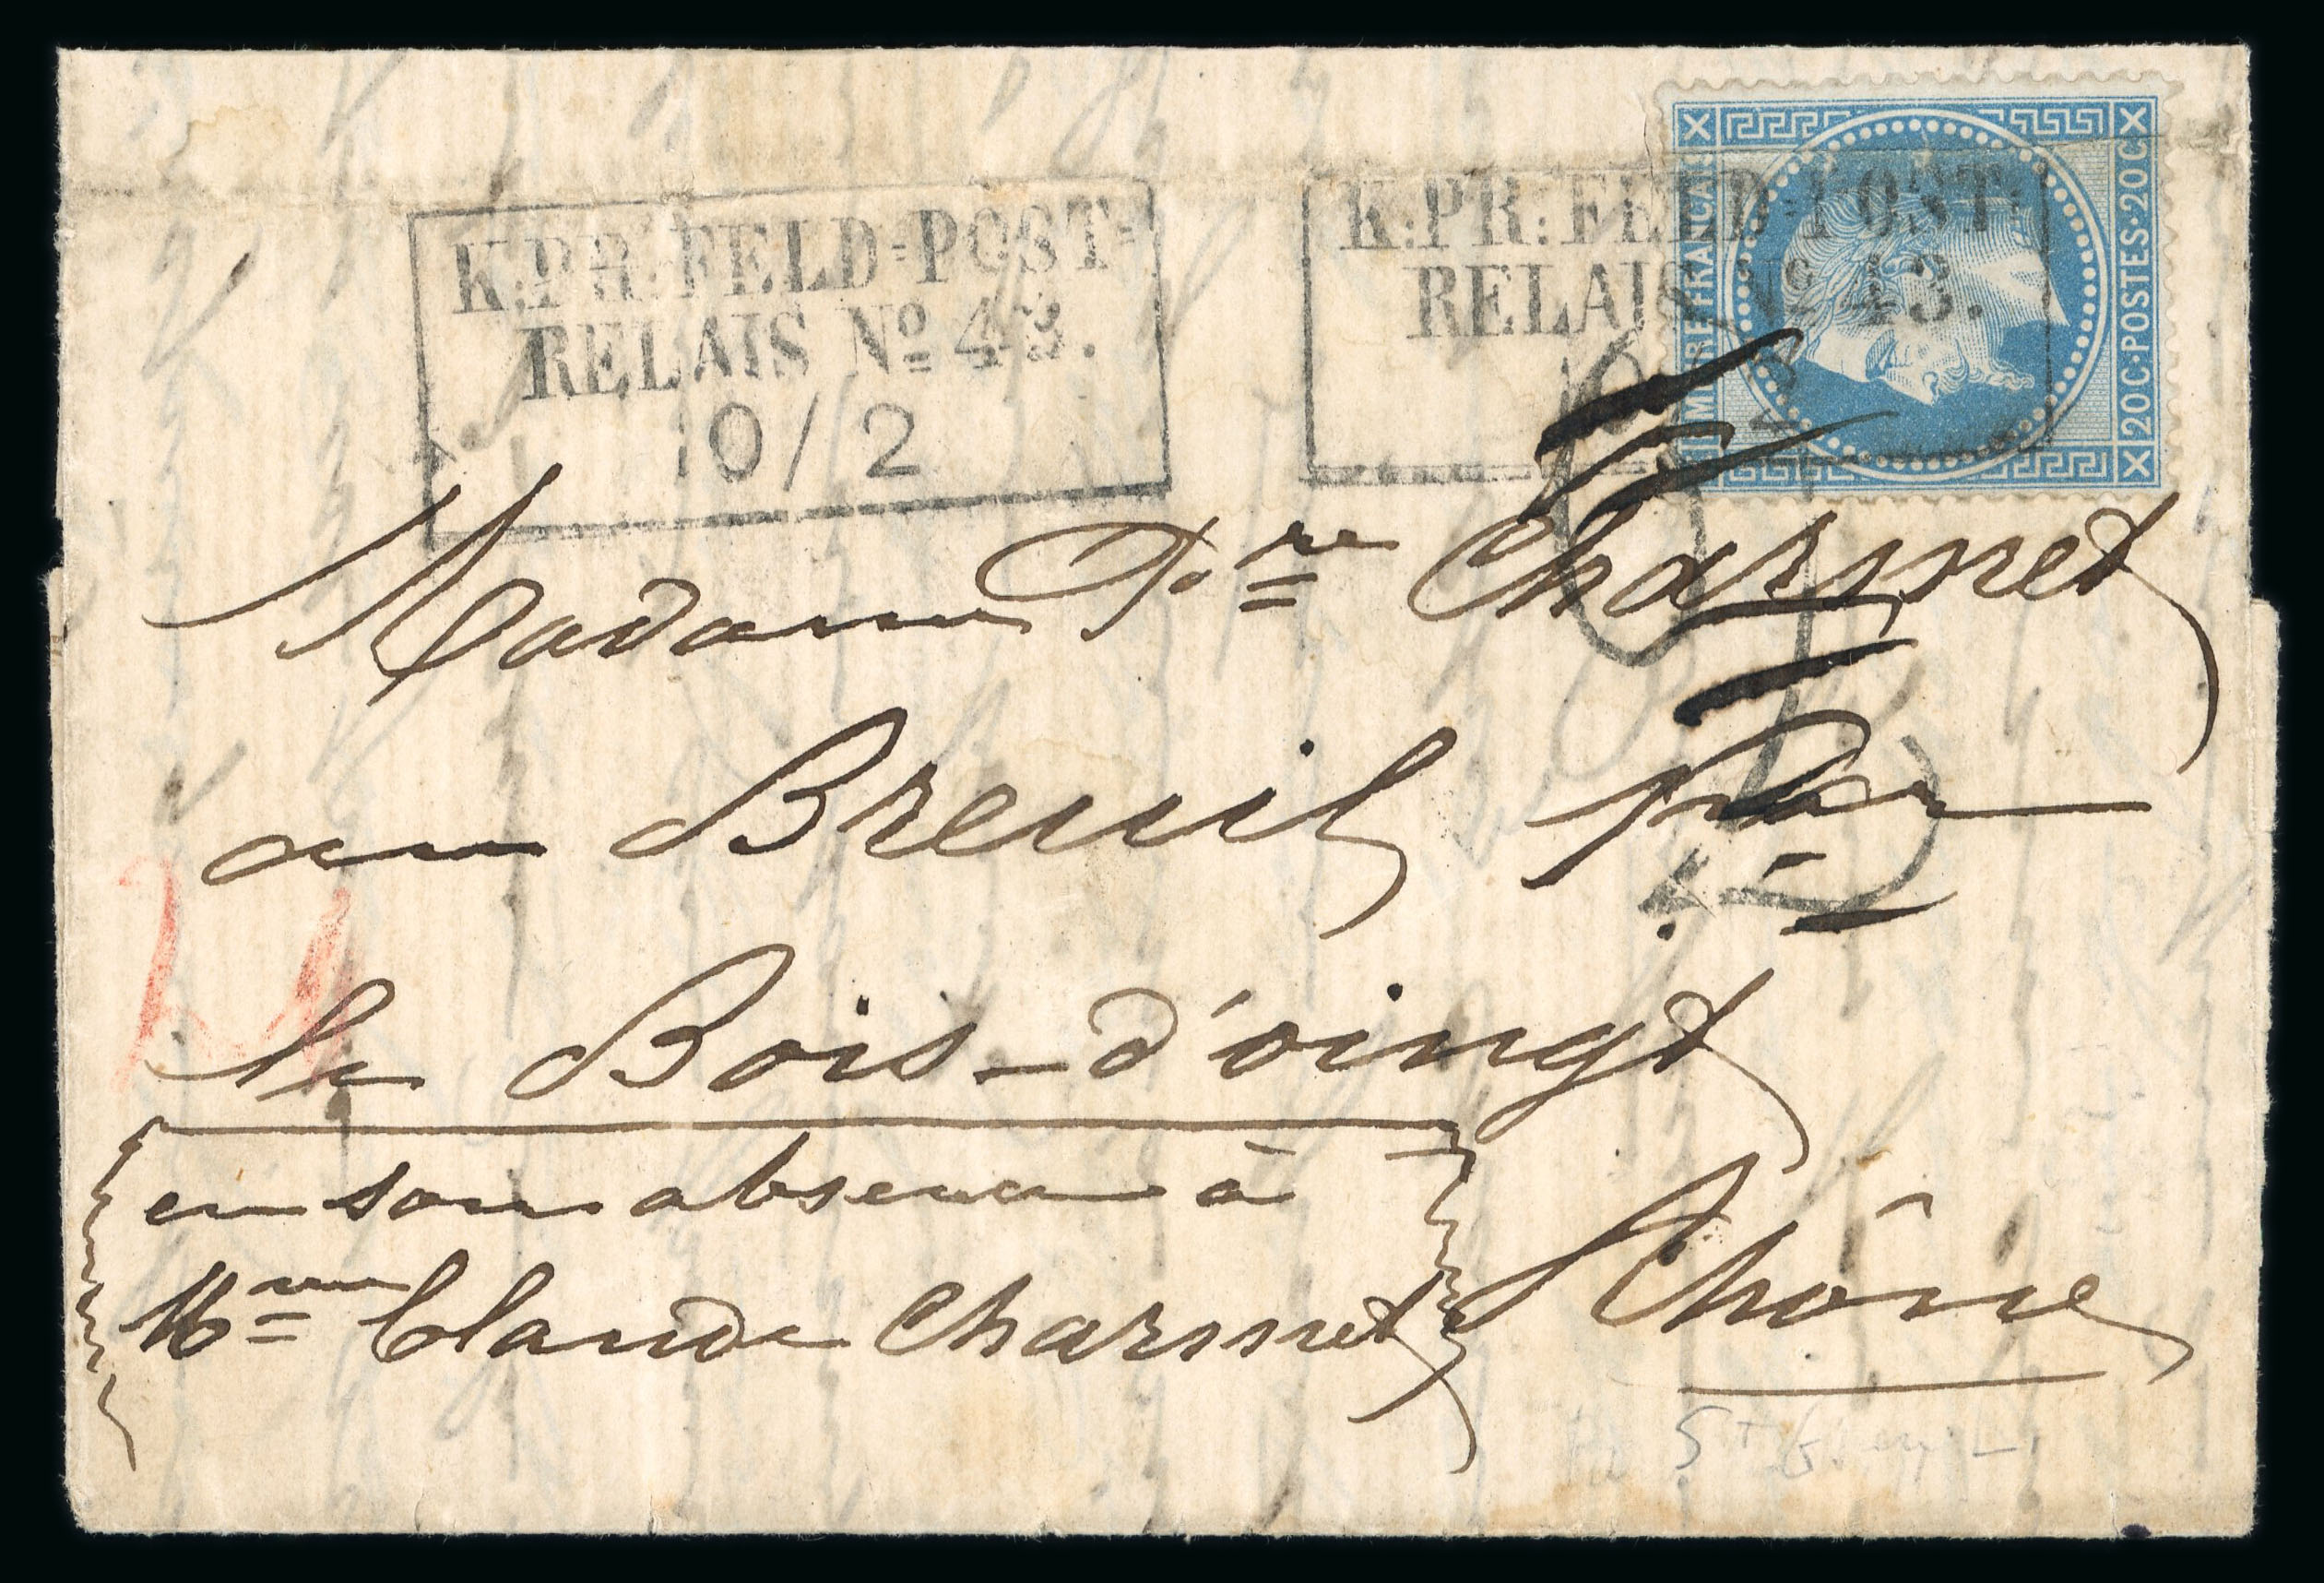 K:PR:FELD=POST=
RELAIS Nº 43.
10/2
K:PR:FELD=POST=
RELAIS Nº 43.
10
EMPIRE FRANCAIS
20C·POSTES·20C
Madame Xre Charmet
au Breuil par
le Bois-d'oingt
Rhône
en son absence à
Mme Claude Charmet